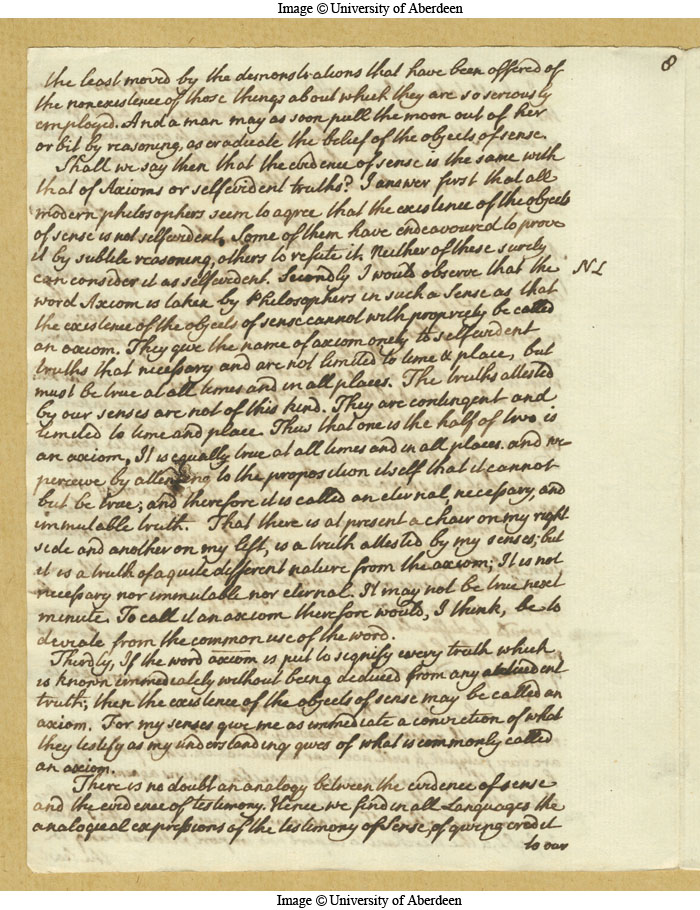 Image © University of Aberdeen
8
the least moved by the demonstrations that have been offered of
the nonexistence of those things about which they are so seriously
employed. And a man may as soon pull the moon out of her
or bit by reasoning, as eradicate the belief of the objects of sense.
Shall we say then that the evidence of sense is the same with
that of Axioms or selfevident truths? I answer first that all
modern philosophers seem to agree that the existence of the objects
of sense is not selfevident. Some of them have endeavoured to prove
it by subtile reasoning, others to refute it. Neither of these surely
can consider it as selfevident. Secondly I would observe that the
NL
word Axiom is taken by Philosophers in such a Sense as that
the existence of the objects of sense cannot with propriety be called
an axiom. They give the name of axiom onely to selfevident
truths that necessary and are not limited to time & place, but
must be true at all times and in all places. The truths attested
by our senses are not of this kind. They are contingent and
limited to time and place. Thus that one is the half of two is
an axiom, It is equally true at all times and in all places. and we
perceive by attending to the proposition itself that it cannot
but be true; and therefore it is called an eternal, necessary, and
immutable truth. That there is at present a chair on my right
side and another on my left, is a truth attested by my senses; but
it is a truth of a quite different nature from the axiom; It is not
necessary nor immutable nor eternal. It may not be true next
minute. To call it an axiom therefore would, I think, be to
deviate from the common use of the word.
Thirdly, If the word axiom is put to signify every truth which
is known immediately without being deduced from any
truth; then the existence of the objects of sense may be called an
axiom. For my senses give me as immediate a conviction of what
they testify as my understanding gives of what is commonly called
an axiom.
There is no doubt an analogy between the evidence of sense
and the evidence of testimony. Hence we find in all Languages the
analogical expressions of the testimony of Sense, of giving credit
to our
Image © University of Aberdeen